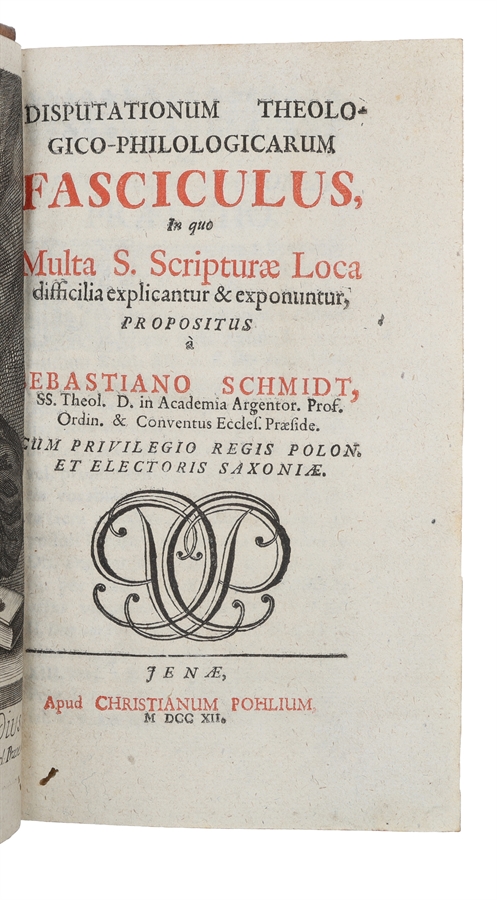 DISPUTATIONUM THEOLO-
GICO-PHILOLOGICARUM
FASCICULUS,
In quo
Multa S. Scripturæ Loca
difficilia explicantur & exponuntur,
PROPOSITUS
à
SEBASTIANO SCHMIDT,
SS. Theol. D. in Academia Argentor. Prof.
Ordin. & Conventus Eccles. Præside.
CUM PRIVILEGIO REGIS POLON.
ET ELECTORIS SAXONIÆ.
JENÆ,
Apud CHRISTIANUM POHLIUM
M DCC XII.